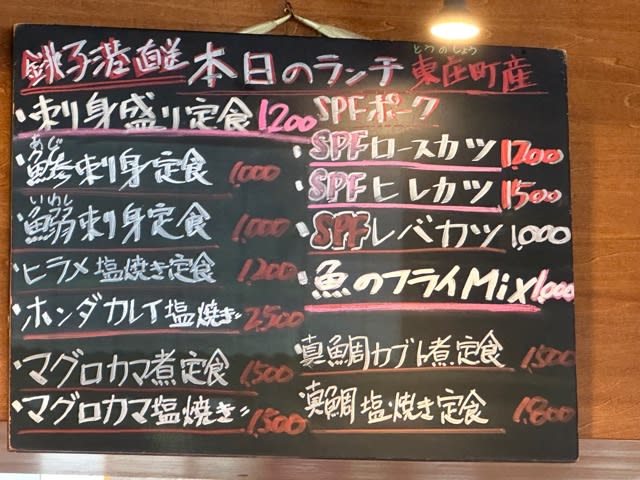 銚子港直送 本日のランチ
とうのしょう
東庄町産
・刺り身盛り定食 1200
あじ
・鯵刺り身定食 1,000
いわし
・鰯刺り身定食 1,000
・ヒラメ塩焼き定食 1,200
・ホンダカレイ塩焼き 2,500
・マグロカマ煮定食 1,500
・マグロカマ塩焼き 1,500
SPFポーク
・SPFロースカツ 1,200
・SPFヒレカツ 1,500
・SPFレバカツ 1,000
・魚のフライMix 1,000
・真鯛カブト煮定食 1,500
・真鯛塩焼き定食 1,800